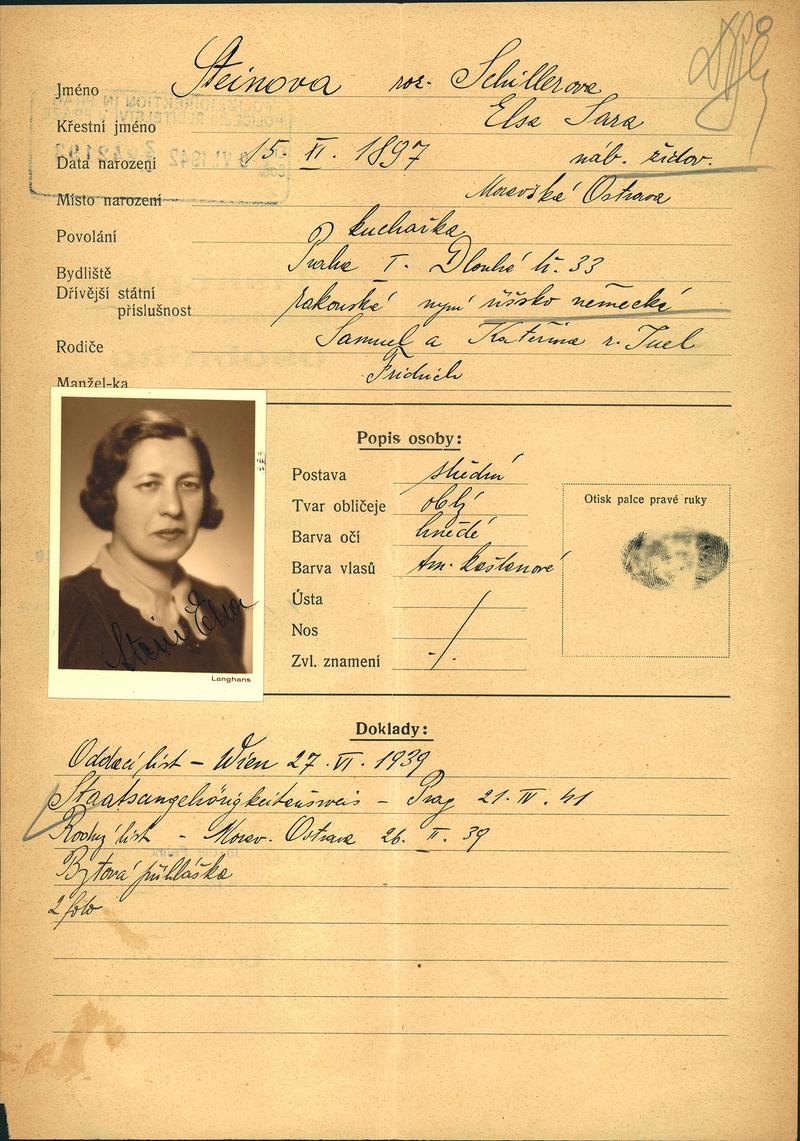 Jméno Steinova roz. Schillerova
Křestní jméno Elsa Sara
Data narození 15. XI. 1897 náb. židov.
Místo narození Moravská Ostrava
Povolání kuchařka
Bydliště Praha I. Dlouhá tř. 33
Dřívější státní
příslušnost rakouská nyní říšsko německá
Rodiče Samuel a Kateřina r. Juel
Manžel-ka Fridrich
Popis osoby:
Postava střední
Tvar obličeje oblý
Barva očí hnědé
Barva vlasů tm. kaštanové
Ústa
Nos
Zvl. znamení -/.
Otisk palce pravé ruky
Stein Elsa
Langhans
Doklady:
Oddací list – Wien 27. VI. 1939
Staatsangehörigkeitausweis – Prag 21. IV. 41
Rodný list – Morav. Ostrava 26. II. 39
Bytová přihláška
2 foto